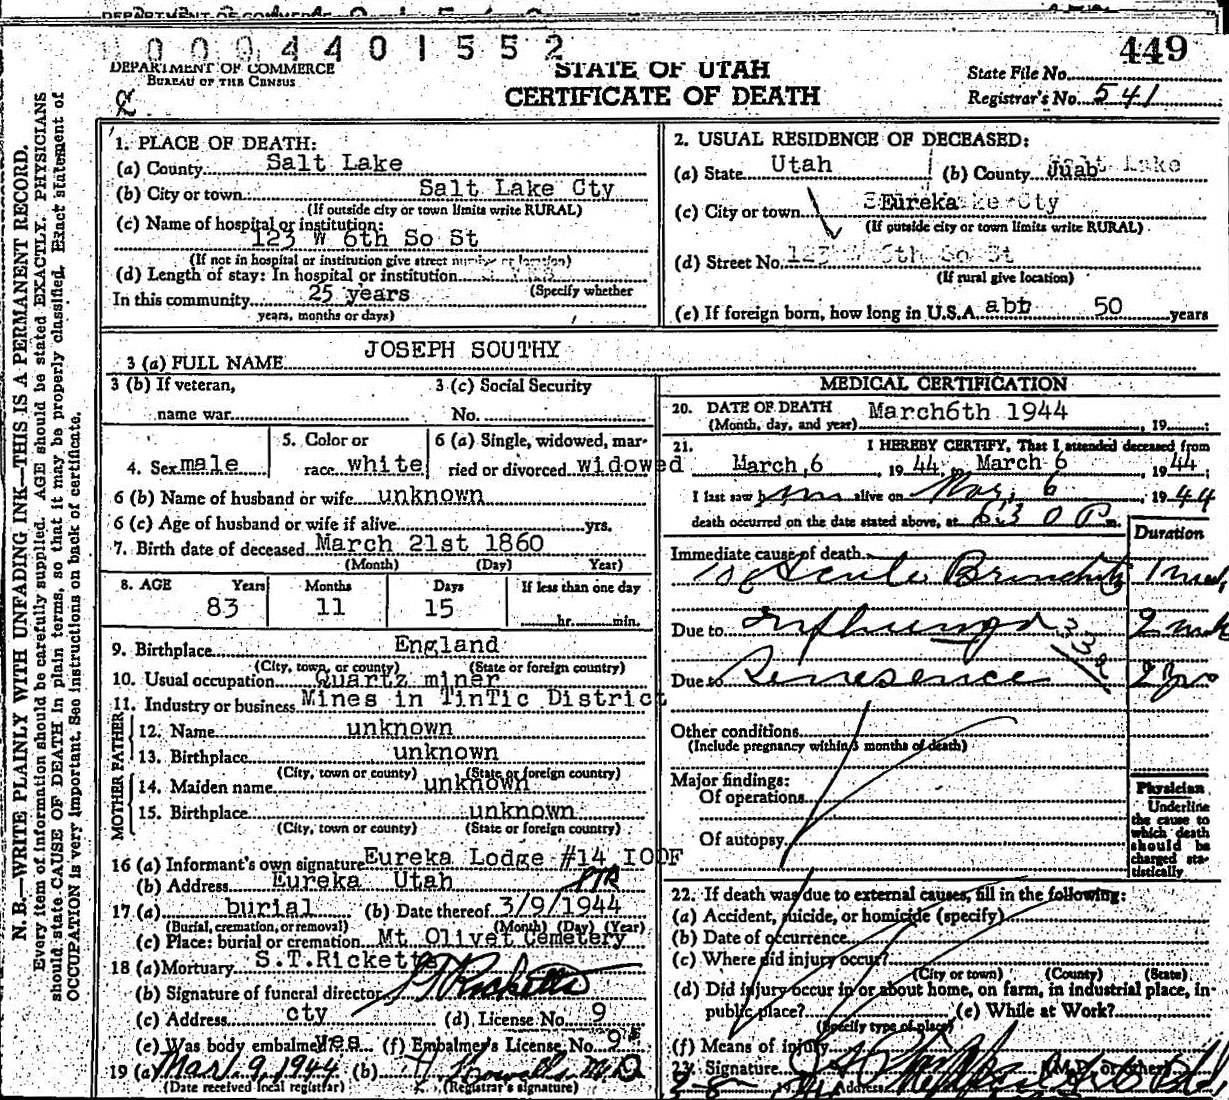 0 0 0 4 4 0 1 5 5 2
449
DEPARTMENT OF COMMERCE
BUREAU OF THE CENSUS
STATE OF UTAH
CERTIFICATE OF DEATH
State File No.
Registrar's No. 541
N. B.—WRITE PLAINLY WITH UNFADING INK—THIS IS A PERMANENT RECORD.
Every item of information should be carefully supplied. AGE should be stated EXACTLY. PHYSICIANS
should state CAUSE OF DEATH in plain terms, so that it may be properly classified. Exact statement of
OCCUPATION is very important. See instructions on back of certificate.
1. PLACE OF DEATH:
(a) County Salt Lake
(b) City or town Salt Lake Cty
(If outside city or town limits write RURAL)
(c) Name of hospital or institution:
123 W 6th So St
(If not in hospital or institution give street number or location)
(d) Length of stay: In hospital or institution
(Specify whether
In this community 25 years
years, months or days)
2. USUAL RESIDENCE OF DECEASED:
(a) State Utah (b) County Juab
(c) City or town Eureka
(If outside city or town limits write RURAL)
(d) Street No. 123 W 6th So St
(If rural give location)
(e) If foreign born, how long in U.S.A. abt 50 years
3 (a) FULL NAME JOSEPH SOUTHY
3 (b) If veteran,
name war
3 (c) Social Security
No.
4. Sex male
5. Color or
race white
6 (a) Single, widowed, mar-
ried or divorced widowed
6 (b) Name of husband or wife unknown
6 (c) Age of husband or wife if alive yrs.
7. Birth date of deceased March 21st 1860
(Month) (Day) Year)
8. AGE Years Months Days If less than one day
83 11 15 hr. min.
9. Birthplace England
(City, town, or county) (State or foreign country)
10. Usual occupation Quartz miner
11. Industry or business Mines in TinTic District
FATHER
12. Name unknown
13. Birthplace unknown
(City, town or county) (State or foreign country)
MOTHER
14. Maiden name unknown
15. Birthplace unknown
(City, town or county) (State or foreign country)
16 (a) Informant's own signature Eureka Lodge #14 IOOF
(b) Address Eureka Utah
17 (a) burial (b) Date thereof 3/9/1944
(Burial, cremation, or removal) (Month) (Day) (Year)
(c) Place: burial or cremation Mt Olivet Cemetery
18 (a) Mortuary S.T.Ricketts
(b) Signature of funeral director S T Ricketts
(c) Address cty (d) License No. 9
(e) Was body embalmed yes (f) Embalmer's License No. 95
19 (a) Mar. 9, 1944 (b)
(Date received local registrar) (Registrar's signature)
MEDICAL CERTIFICATION
20. DATE OF DEATH March6th 1944
(Month, day, and year) , 19
21. I HEREBY CERTIFY, That I attended deceased from
March,6 , 19 44, to March 6 , 19 44;
I last saw him alive on Mar. 6 , 19 44
death occurred on the date stated above, at 6:30 P m.
Duration
Immediate cause of death
Acute Bronchitis
Due to
Due to 2 yrs
Other conditions
(Include pregnancy within 3 months of death)
Major findings:
Of operations
Of autopsy
Physician
Underline
the cause to
which death
should be
charged sta-
tistically.
22. If death was due to external causes, fill in the following:
(a) Accident, suicide, or homicide (specify)
(b) Date of occurrence
(c) Where did injury occur?
(City or town) (County) (State)
(d) Did injury occur in or about home, on farm, in industrial place, in
public place? (e) While at Work?
(Specify type of place)
(f) Means of injury
23. Signature (M.D. or other)
Address